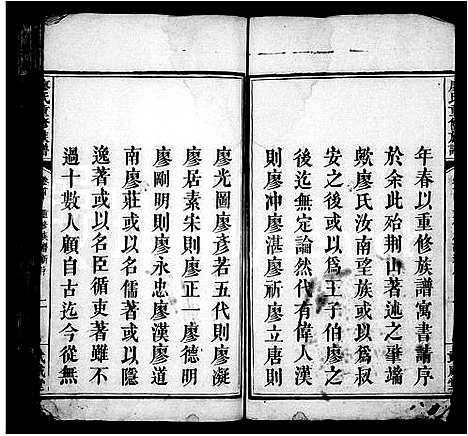 年春以重修族譜寓書請序
於余此殆荆山著述之肇端
歟廖氏汝南望族或以爲叔
安之後或以爲王子伯廖之
後迄無定論然代有偉人漢
則廖冲廖湛廖祈廖立唐則
廖光圖廖彦若五代則廖凝
廖居素宋則廖正一廖德明
廖剛明則廖永忠廖漢廖道
南廖莊或以儒著或以隱
逸著或以名臣循吏著雖不
過十數人顧自古迄今從無
廖氏重修族譜